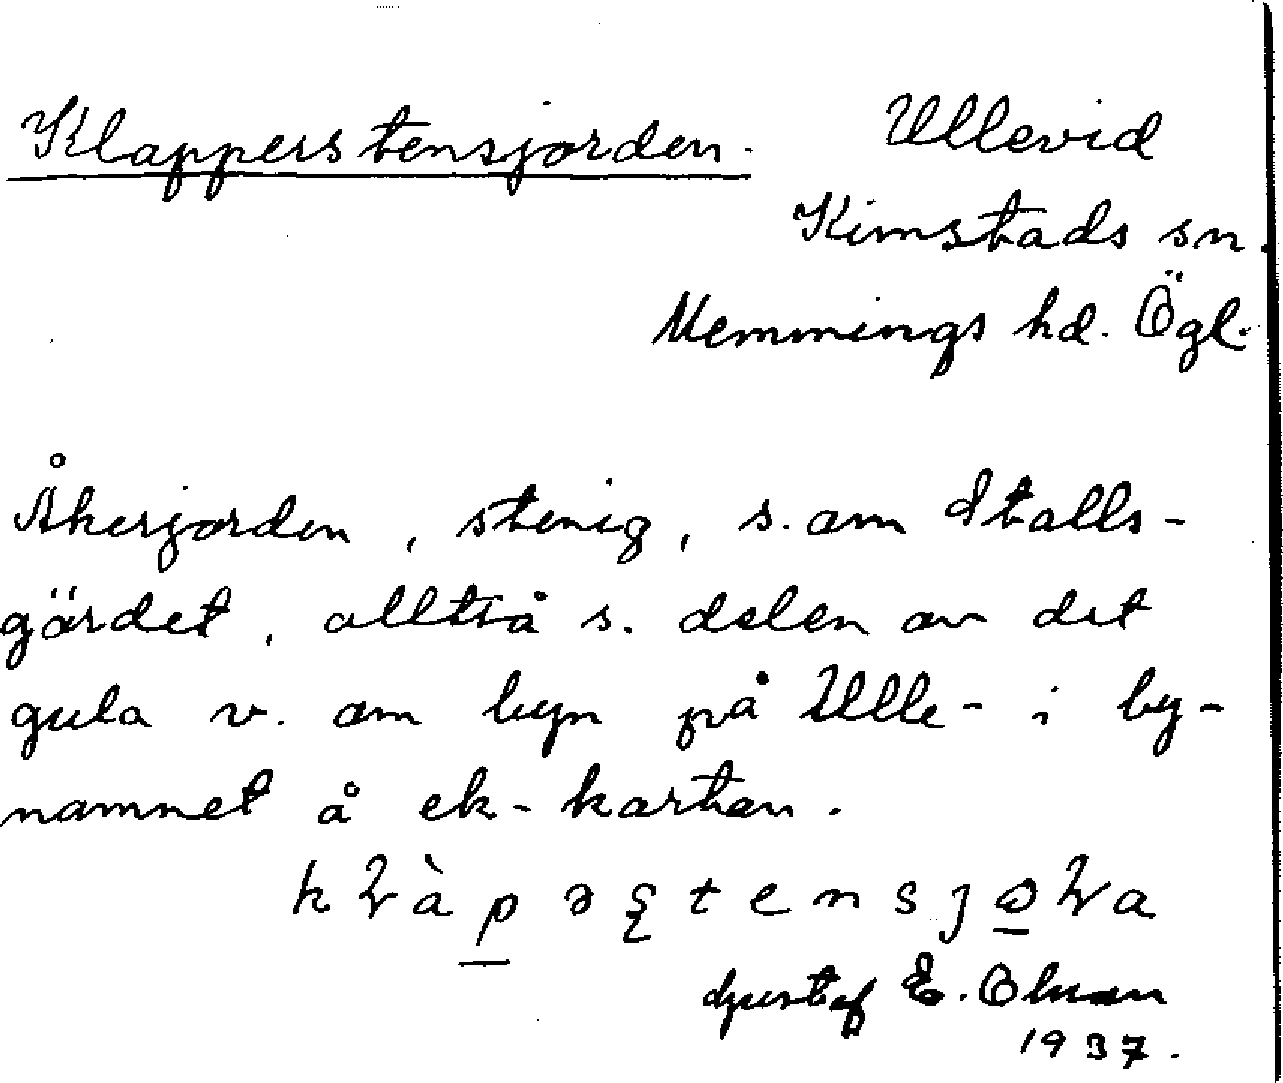 Klapperstensjorden. Ullevid
Kimstads sn.
Memmings hd. Ögl.
Åkerjorden, stenig, s. om Stalls-
gärdet, alltså s. delen av det
gula v. om byn på Ulle- i by-
namnet å ek-kartan.
Gustaf E. Olsson
1937.